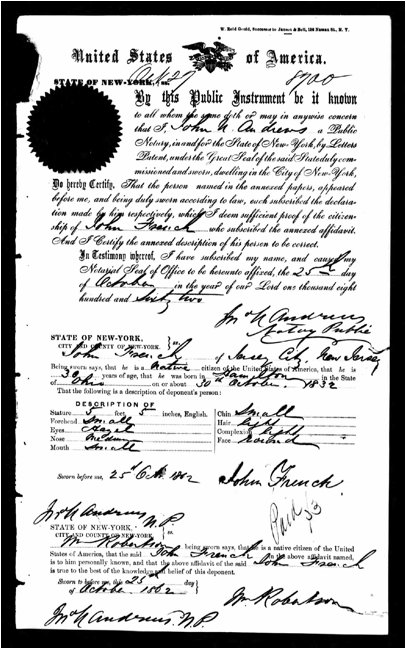 W. Reid Gould, Successor to Jansen & Bell, 158 Nassau St., N. Y.
United States of America.
STATE OF NEW-YORK, ss. Oct 27 8700
By this Public Instrument be it known
to all whom the same doth or may in anywise concern
that I, John N. Andrews a Public
Notary, in and for the State of New-York, by Letters
Patent, under the Great Seal of the said State duly com-
missioned and sworn, dwelling in the City of New-York,
Do hereby Certify, That the person named in the annexed papers, appeared
before me, and being duly sworn according to law, each subscribed the declara-
tion made by him respectively, which I deem sufficient proof of the citizen-
ship of John French who subscribed the annexed affidavit.
And I Certify the annexed description of his person to be correct.
In Testimony whereof, I have subscribed my name, and caused my
Notarial Seal of Office to be hereunto affixed, the 25th day
of October in the year of our Lord one thousand eight
hundred and Sixty two
Jno N Andrews
Notary Public
STATE OF NEW-YORK,
CITY AND COUNTY OF NEW-YORK. } ss.
John French of Jersey City, New Jersey
Being sworn says, that he is a native citizen of the United States of America, that he is
30 years of age, that he was born in Hamilton in the State
of Ohio on or about 30th October 1832
That the following is a description of deponent's person:
DESCRIPTION OF
Stature 5 feet, 5 inches, English.
Forehead Small
Eyes Hazel
Nose Medium
Mouth Small
Chin Small
Hair light
Complexion light
Face Round
Sworn before me, 25th Oct. 1862
John French
Jno N Andrews N.P.
Paid 3/3
STATE OF NEW-YORK,
CITY AND COUNTY OF NEW-YORK. } ss.
Wm Robertson being sworn says, that he is a native citizen of the United
States of America, that the said John French in the above affidavit named,
is to him personally known, and that the above affidavit of the said John French
is true to the best of the knowledge and belief of this deponent.
Sworn to before me, this 25th day
of October 1862
Wm Robertson
Jno N Andrews N.P.